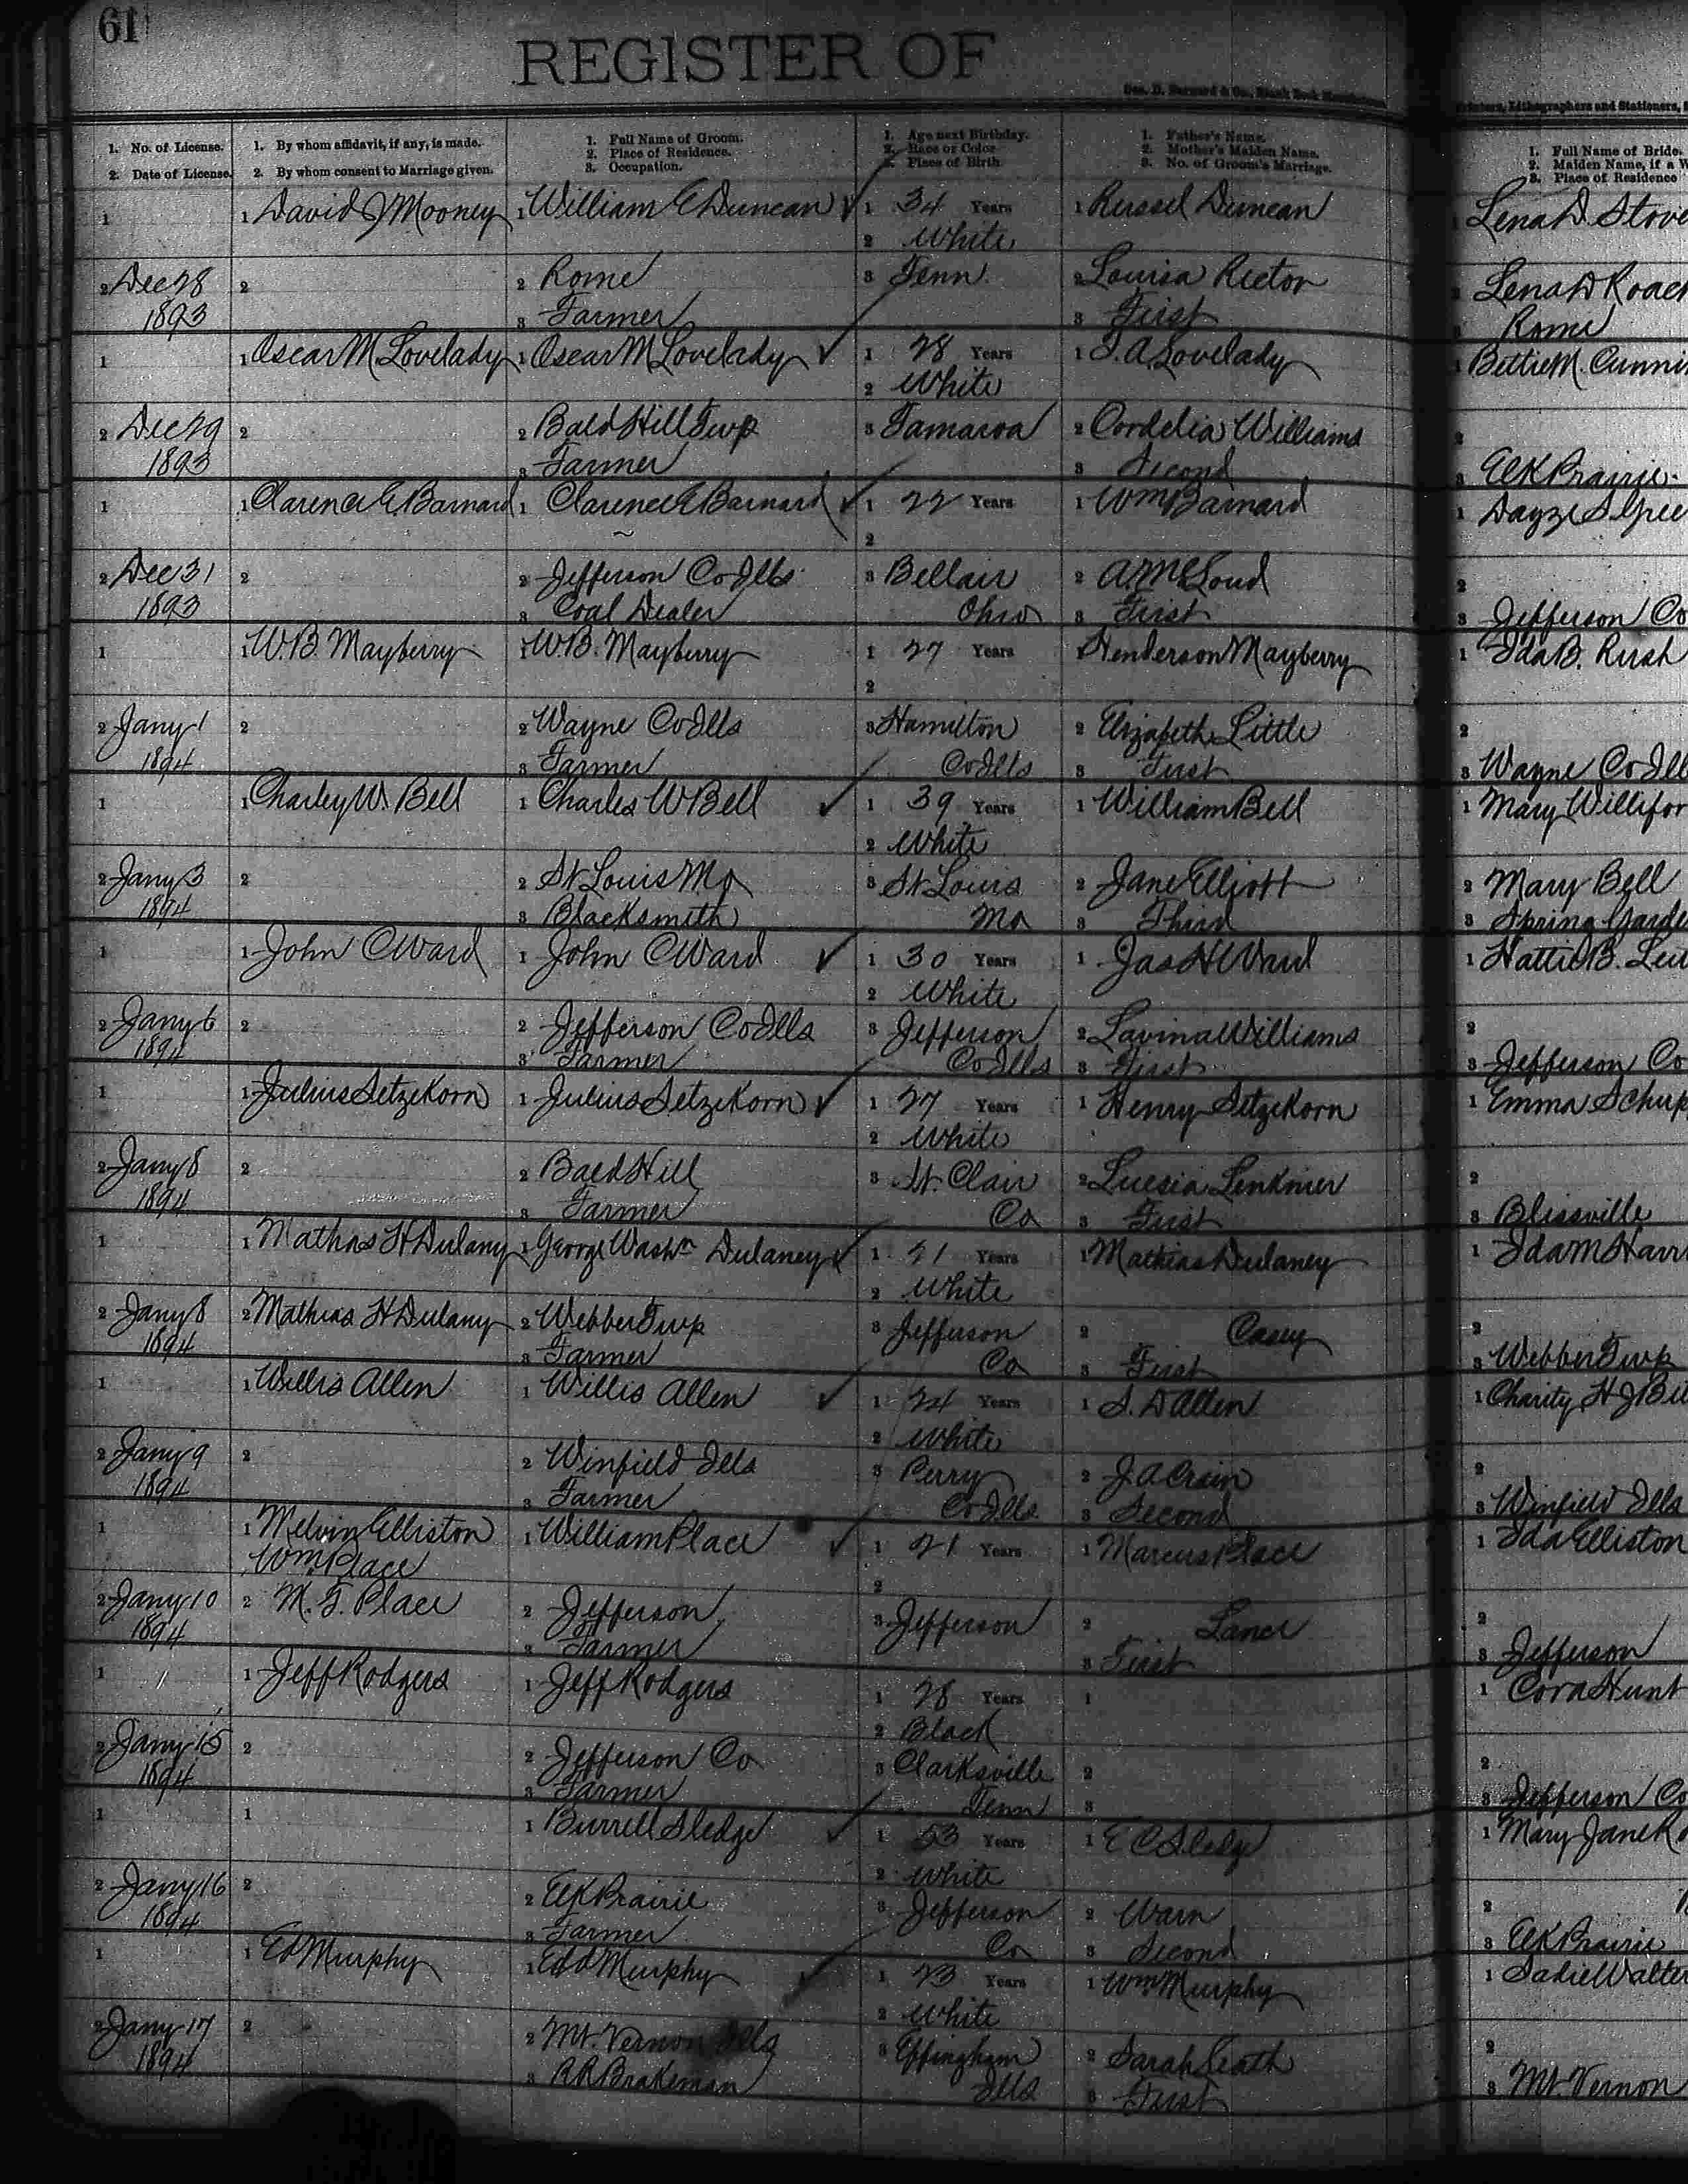 61
REGISTER OF
Geo. D. Barnard & Co., Blank Book Manufacturers
Printers, Lithographers and Stationers,
1. No. of License.
2. Date of License.
1. By whom affidavit, if any, is made.
2. By whom consent to Marriage given.
1. Full Name of Groom.
2. Place of Residence.
3. Occupation.
1. Age next Birthday.
2. Race or Color
3. Place of Birth
1. Father's Name.
2. Mother's Maiden Name.
3. No. of Groom's Marriage.
1. Full Name of Bride.
2. Maiden Name, if a W
3. Place of Residence
1 1 David J Mooney 1 William E Duncan 1 34 Years 1 Russel Duncan Lena D. Stove
2 White
2 Dec 28 2 2 Rome 3 Tenn. 2 Louisa Rector Lena D Roach
1893 3 Farmer 3 First Rome
1 1 Oscar M Lovelady 1 Oscar M Lovelady 1 28 Years 1 J. A. Lovelady 1 Bettie M. Cunni
2 White
2 Dec 29 2 2 Bald Hill Twp 3 Tamaroa 2 Cordelia Williams 2
1893 3 Farmer 3 Second 3 Elk Prairie
1 1 Clarence E. Barnard 1 Clarence E Barnard 1 22 Years 1 Wm Barnard 1 Dayze S. Gree
2
2 Dec 31 2 2 Jefferson Co Ills 3 Bellair 2 A McLoud 2
1893 3 Coal Dealer Ohio 3 First 3 Jefferson Co
1 1 W. B. Mayberry 1 W. B. Mayberry 1 27 Years 1 Henderson Mayberry 1 Ida B. Rush
2
2 Jany 1 2 2 Wayne Co Ills 3 Hamilton 2 Elizabeth Little 2
1894 3 Farmer Co Ills 3 First 3 Wayne Co Ill
1 1 Charley W. Bell 1 Charles W Bell 1 39 Years 1 William Bell 1 Mary Willifor
2 White
2 Jany 3 2 2 St Louis Mo 3 St Louis 2 Jane Elliott 2 Mary Bell
1894 3 Blacksmith Mo 3 Third 3 Spring Garde
1 1 John C Ward 1 John C Ward 1 30 Years 1 Jas H Ward 1 Hattie B. Leu
2 White
2 Jany 6 2 2 Jefferson Co Ills 3 Jefferson 2 Lavina Williams 2
1894 3 Farmer Co Ills 3 First 3 Jefferson Co
1 1 Julius Setzekorn 1 Julius Setzekorn 1 27 Years 1 Henry Setzekorn 1 Emma Schup
2 White
2 Jany 8 2 2 Bald Hill 3 St. Clair 2 Luesia 2
1894 3 Farmer Co 3 First 3 Blissville
1 1 Mathas H Dulany 1 George Washn Dulaney 1 21 Years 1 Mathias Dulaney 1 Ida M Harr
2 White
2 Jany 8 2 Mathias H Dulany 2 Webber Twp 3 Jefferson 2 Casey 2
1894 3 Farmer Co 3 First 3 Webber Twp
1 1 Willis Allen 1 Willis Allen 1 24 Years 1 S. D Allen 1 Charity H J Bu
2 White
2 Jany 9 2 2 Winfield Ills 3 Perry 2 J. A Crain 2
1894 3 Farmer Co Ills 3 Second 3 Winfield Ills
1 1 Melvin Elliston 1 William Place 1 21 Years 1 Marcus Place 1 Ida Elliston
Wm Place 2
2 Jany 10 2 M. F. Place 2 Jefferson 3 Jefferson 2 Lance 2
1894 3 Farmer 3 First 3 Jefferson
1 1 Jeff Rodgers 1 Jeff Rodgers 1 28 Years 1 1 Cora Hunt
2 Black
2 Jany 15 2 2 Jefferson Co 3 Clarksville 2 2
1894 3 Farmer Tenn 3 3 Jefferson Co
1 1 1 Burrell Sledge 1 53 Years 1 E C Sledge 1 Mary Jane Ro
2 White
2 Jany 16 2 2 Elk Prairie 3 Jefferson 2 Warn 2
1894 3 Farmer Co 3 Second 3 Elk Prairie
1 1 Ed Murphy 1 Edd Murphy 1 23 Years 1 Wm Murphy 1 Sadie Walter
2 White
2 Jany 17 2 2 Mt. Vernon Ills 3 Effingham 2 Sarah Leath 2
1894 3 RR Brakeman Ills 3 First 3 Mt. Vernon